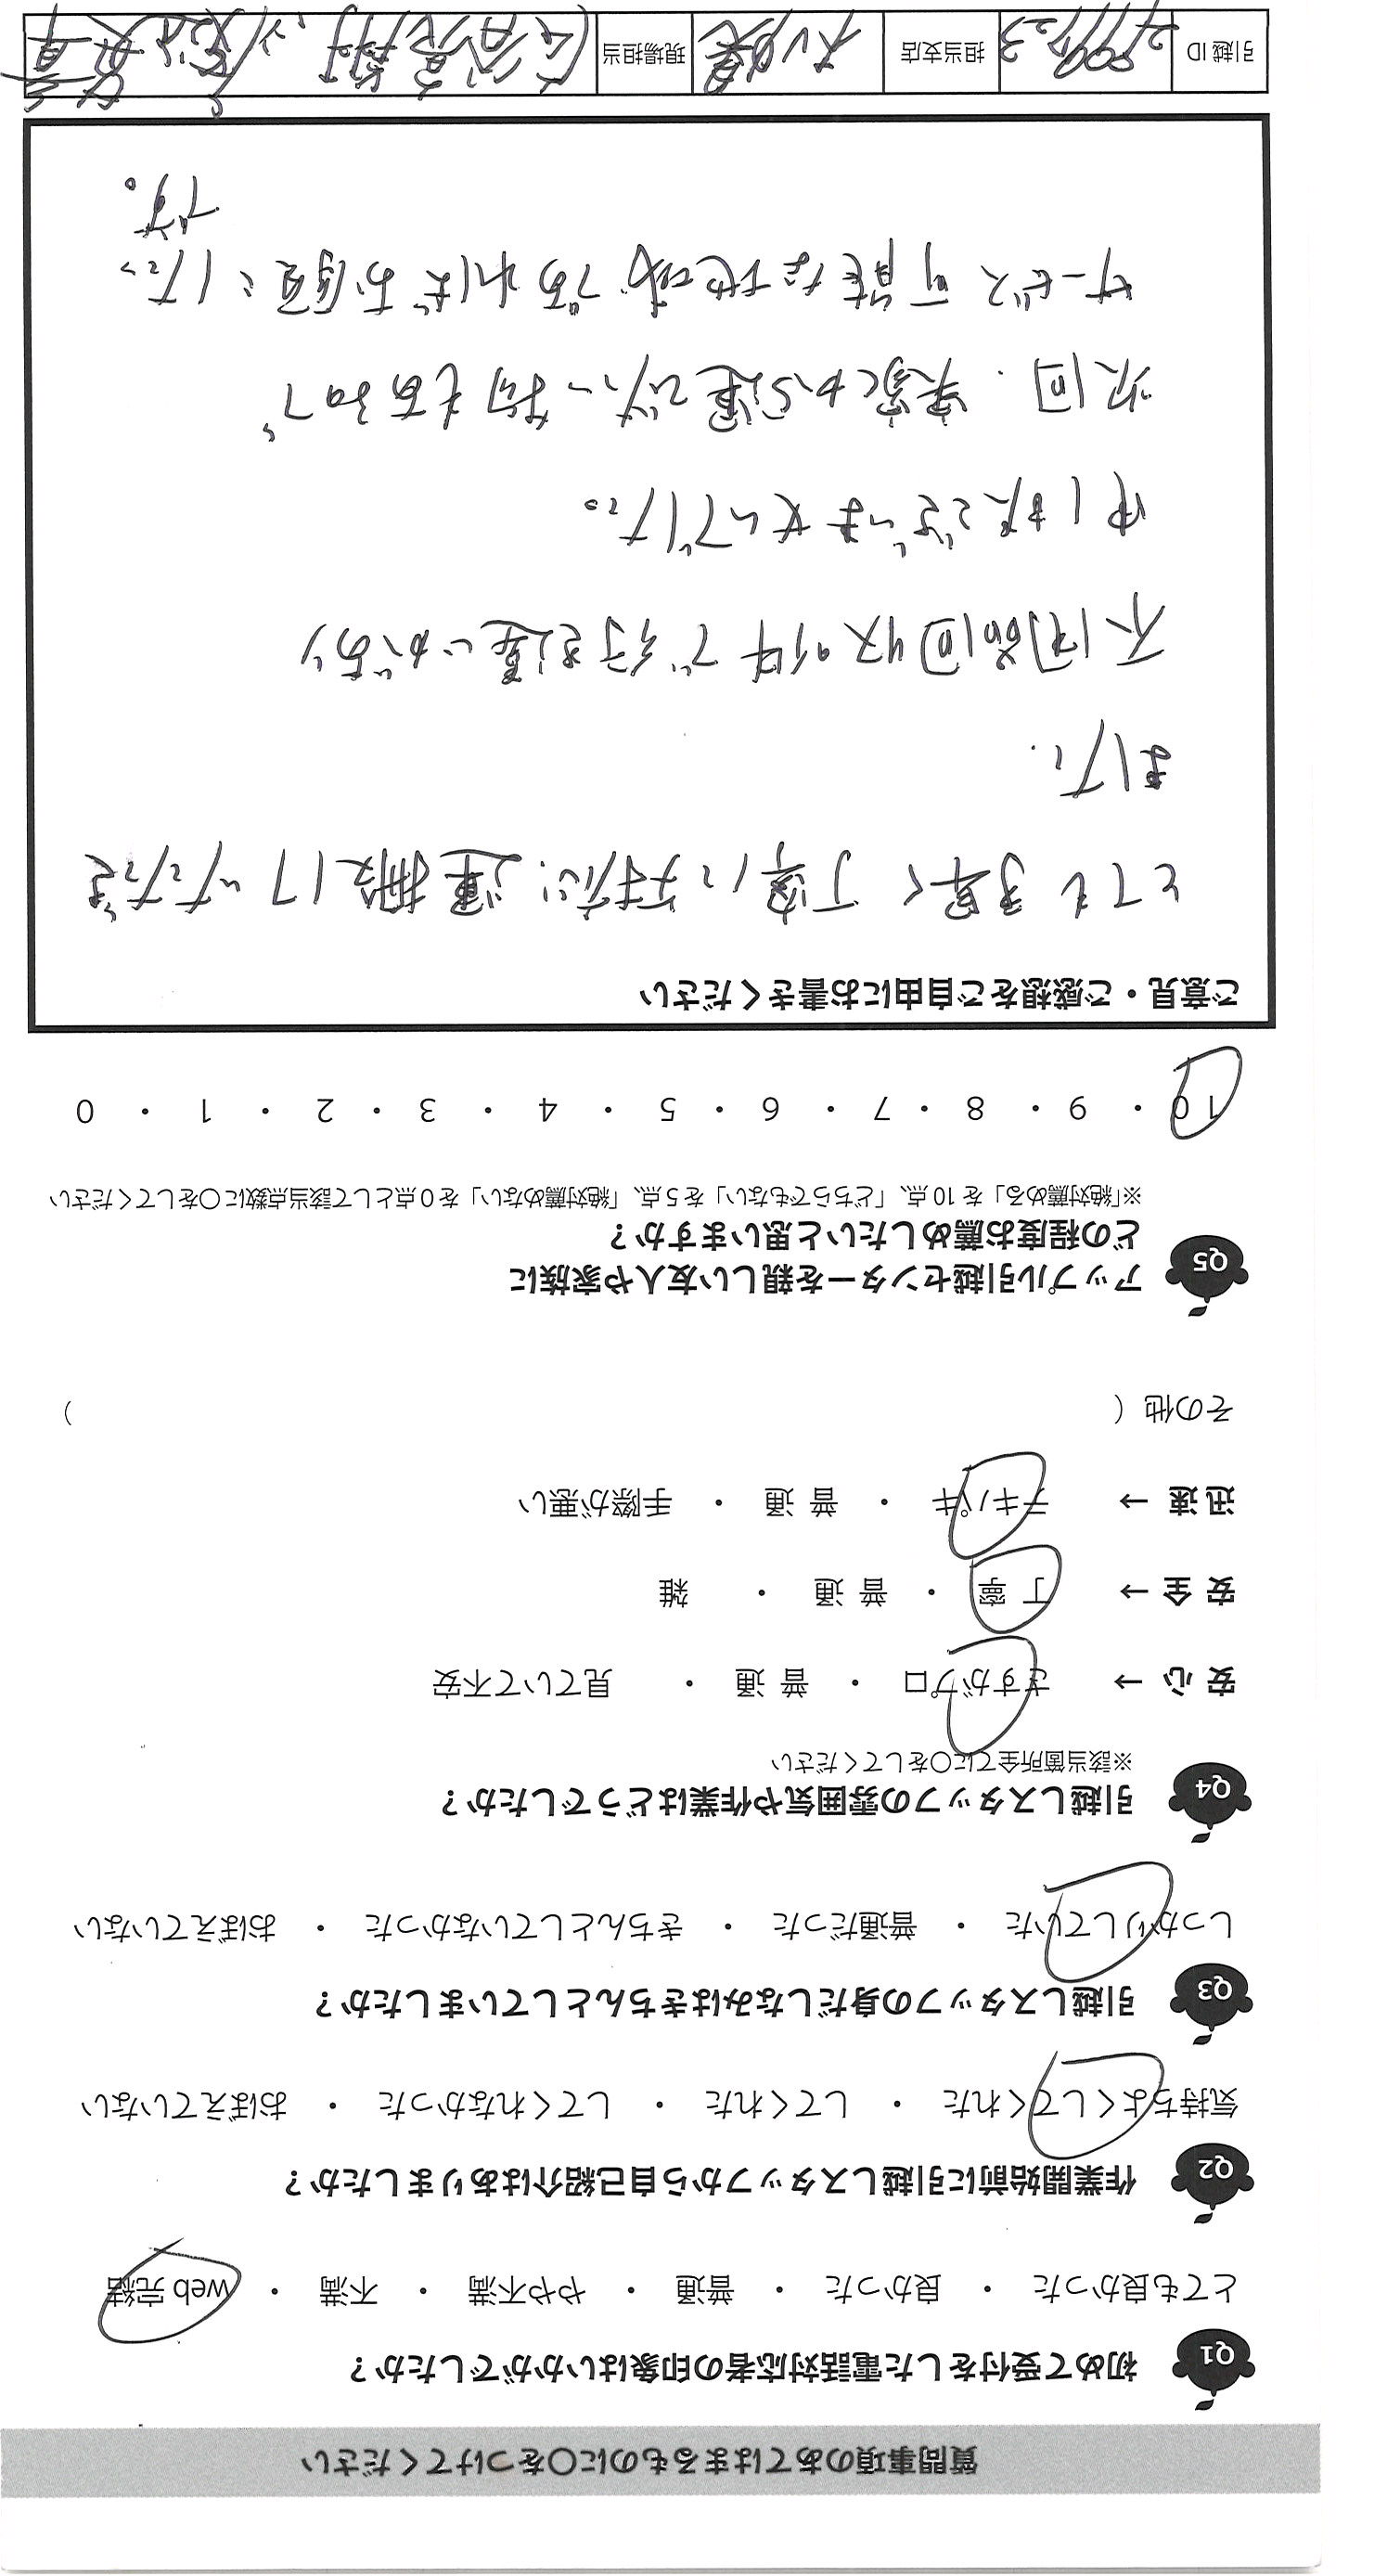 質問事項のあてはまるものに〇をつけてください
Q1 初めて受付をした電話対応者の印象はいかがでしたか？
とても良かった ・ 良かった ・ 普通 ・ やや不満 ・ 不満 ・ web 完結
Q2 作業開始前に引越しスタッフから自己紹介はありましたか？
気持ちよくしてくれた ・ してくれた ・ してくれなかった ・ おぼえていない
Q3 引越しスタッフの身だしなみはきちんとしていましたか？
しっかりしていた ・ 普通だった ・ きちんとしていなかった ・ おぼえていない
Q4 引越しスタッフの雰囲気や作業はどうでしたか？
※該当箇所全てに〇をしてください
安心 → さすがプロ ・ 普通 ・ 見ていて不安
安全 → 丁寧 ・ 普通 ・ 雑
迅速 → テキパキ ・ 普通 ・ 手際が悪い
その他（ ）
Q5 アップル引越センターを親しい友人や家族に
どの程度お薦めしたいと思いますか？
※「絶対薦める」を 10 点、「どちらでもない」を 5 点、「絶対薦めない」を 0 点として該当点数に〇をしてください
10 ・ 9 ・ 8 ・ 7 ・ 6 ・ 5 ・ 4 ・ 3 ・ 2 ・ 1 ・ 0
ご意見・ご感想をご自由にお書きください
とても手早く丁寧に対応、運搬していただき
ました。
不用品回収の件で行き違いがあり
申し訳ございませんでした。
次回、実家から運びたい物もあるので、
サービス可能な地域であればお願いしたい
です。
引越 ID 担当支店 現場担当